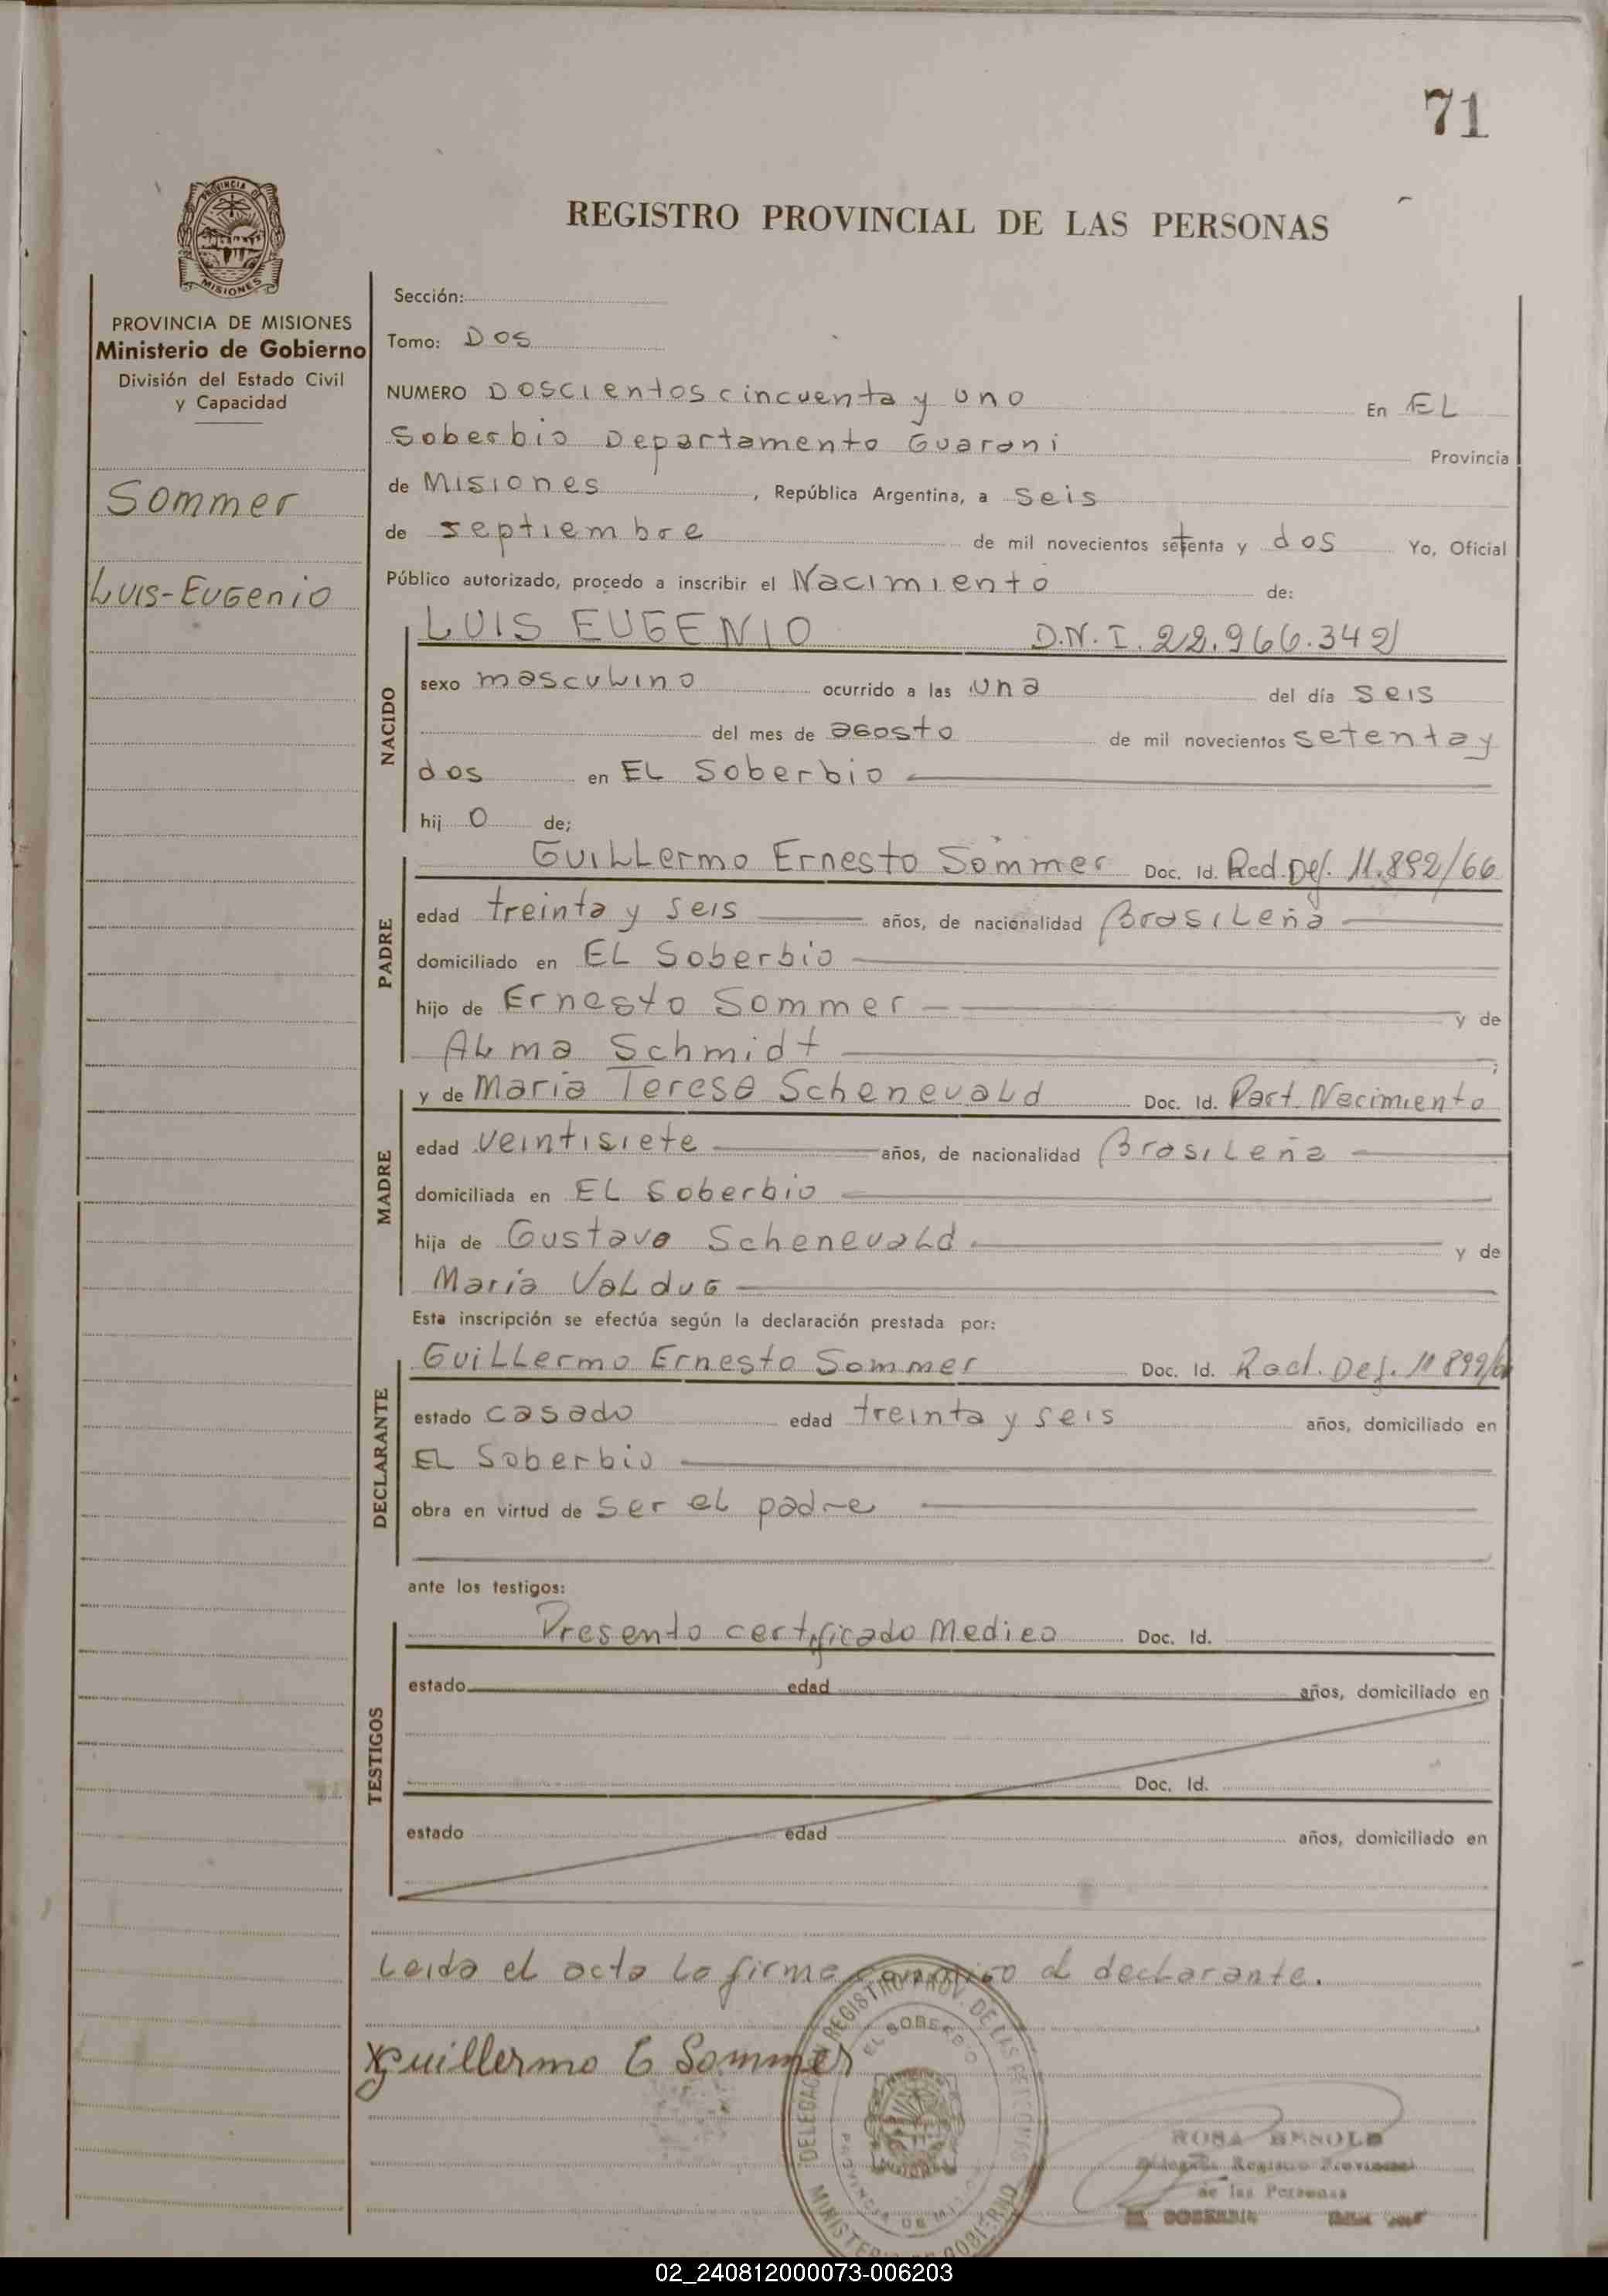 71
PROVINCIA DE
MISIONES
REGISTRO PROVINCIAL DE LAS PERSONAS
PROVINCIA DE MISIONES
Ministerio de Gobierno
División del Estado Civil
y Capacidad
Sommer
Luis-Eugenio
Sección:
Tomo: Dos
NUMERO Doscientos cincuenta y uno En EL
Soberbio Departamento Guarani Provincia
de Misiones, República Argentina, a seis
de septiembre de mil novecientos setenta y dos Yo, Oficial
Público autorizado, procedo a inscribir el Nacimiento de:
NACIDO
LUIS EUGENIO D.N.I. 22.966.342
sexo masculino ocurrido a las una del día seis
del mes de agosto de mil novecientos setenta y
dos en EL Soberbio
hij o de;
PADRE
Guillermo Ernesto Sommer Doc. Id. Rad. Def. 11.892/66
edad treinta y seis años, de nacionalidad Brasileña
domiciliado en EL Soberbio
hijo de Ernesto Sommer y de
Alma Schmidt;
MADRE
y de Maria Teresa Schenevald Doc. Id. Part. Nacimiento
edad veintisiete años, de nacionalidad Brasileña
domiciliada en EL Soberbio
hija de Gustavo Schenevald y de
Maria Valdug
Esta inscripción se efectúa según la declaración prestada por:
DECLARANTE
Guillermo Ernesto Sommer Doc. Id. Rad. Def. 11892/
estado casado edad treinta y seis años, domiciliado en
EL Soberbio
obra en virtud de ser el padre
ante los testigos:
TESTIGOS
Presento certificado Medico Doc. Id.
estado edad años, domiciliado en
Doc. Id.
estado edad años, domiciliado en
Leida el acta la firma conmigo el declarante.
Guillermo E Sommer
DELEGACION REGISTRO PROV. DE LAS PERSONAS
EL SOBERBIO
PROVINCIA DE MISIONES
MINISTERIO DE GOBIERNO
ROSA
Registro Provincial
de las Personas
EL SOBERBIO
02_240812000073-006203